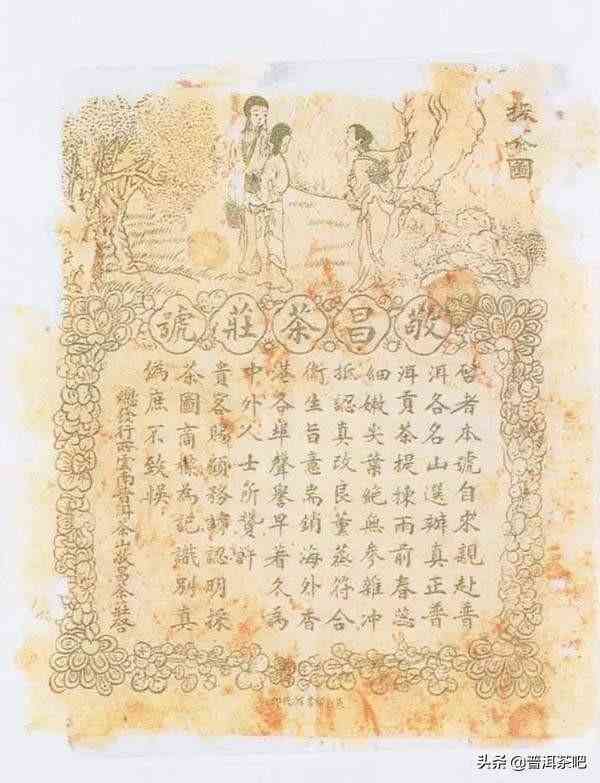 採茶圖
敬昌茶莊號
啓者本號自來親赴普
洱各名山選辦真正普
洱貢茶提揀雨前春蕊
細嫩尖葉絶無參雜冲
抵認真改良薰蒸符合
衛生旨意耑銷海外香
港各埠聲譽早著久為
中外人士所贊許
貴客賜顧務請認明採
茶圖商標為記識別真
偽庶不致悞
總發行所雲南普洱茶山敬昌茶莊啓
头条 @普洱茶吧